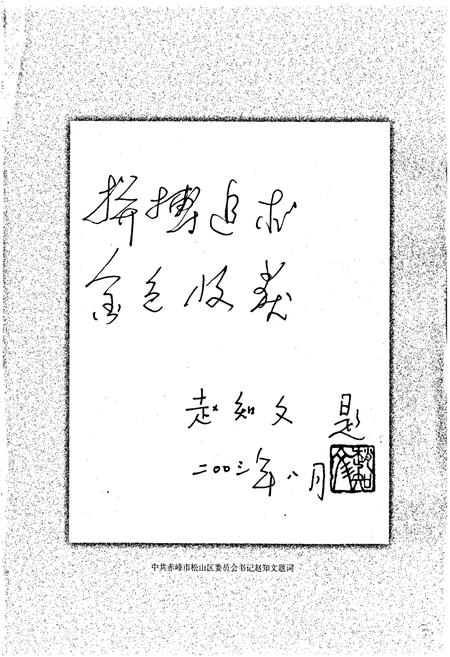 拼搏追求
金色收获
赵知文 题
二〇〇三年八月
赵知文
中共赤峰市松山区委员会书记赵知文题词